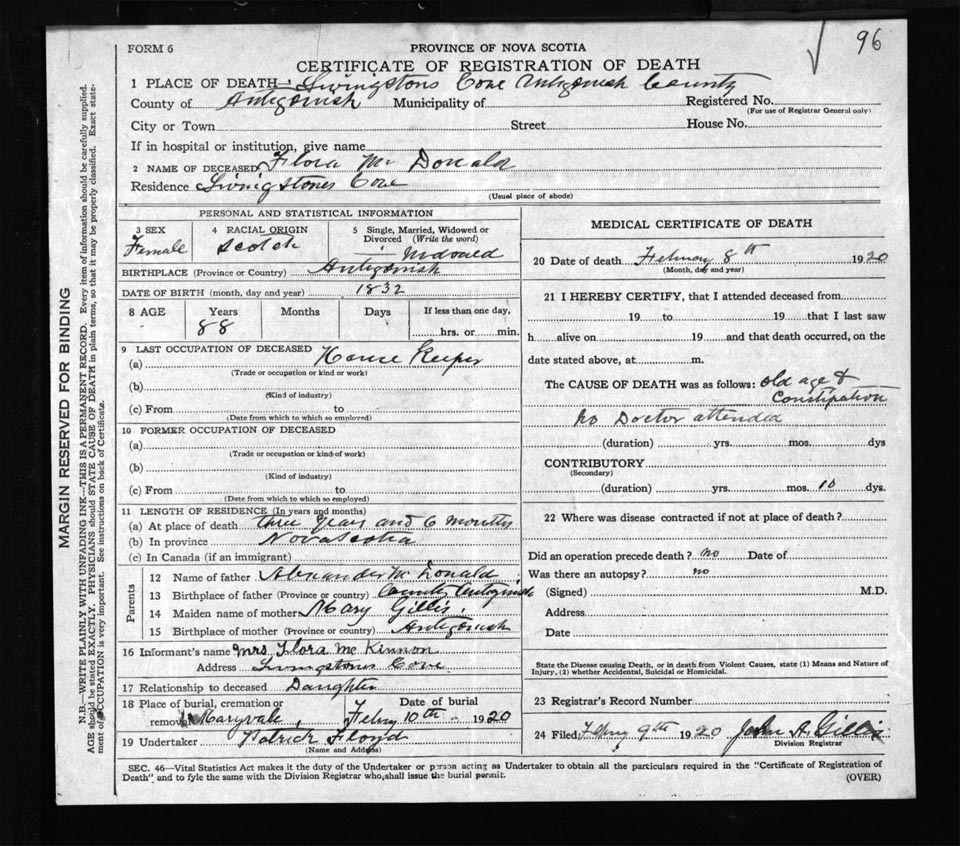 96
FORM 6
PROVINCE OF NOVA SCOTIA
CERTIFICATE OF REGISTRATION OF DEATH
1 PLACE OF DEATH Livingstons Cove Antigonish County
County of Antigonish Municipality of Registered No.
(For use of Registrar General only)
City or Town Street House No.
If in hospital or institution, give name
2 NAME OF DECEASED Flora Mc Donald
Residence Livingstones Cove
(Usual place of abode)
PERSONAL AND STATISTICAL INFORMATION
3 SEX 4 RACIAL ORIGIN 5 Single, Married, Widowed or
Divorced (Write the word)
Female Scotch
BIRTHPLACE (Province or Country) Antigonish
DATE OF BIRTH (month, day and year) 1832
8 AGE Years Months Days If less than one day,
88 hrs. or min.
9 LAST OCCUPATION OF DECEASED House Keeper
(a)
(Trade or occupation or kind or work)
(b)
(Kind of industry)
(c) From to
(Date from which to which so employed)
10 FORMER OCCUPATION OF DECEASED
(a)
(Trade or occupation or kind of work)
(b)
(Kind of industry)
(c) From to
(Date from which to which so employed)
11 LENGTH OF RESIDENCE (In years and months)
(a) At place of death three years and 6 months
(b) In province Nova Scotia
(c) In Canada (if an immigrant)
Parents
12 Name of father Alexander Mc Donald
13 Birthplace of father (Province or country) County Antigonish
14 Maiden name of mother Mary Gillis
15 Birthplace of mother (Province or country) Antigonish
16 Informant's name Mrs Flora Mc Kinnon
Address Livingstones Cove
17 Relationship to deceased Daughter
18 Place of burial, cremation or Date of burial
removal Maryvale, Febry 10th 1920
19 Undertaker Patrick Floyd
(Name and Address)
MEDICAL CERTIFICATE OF DEATH
20 Date of death February 8th 1920
(Month, day and year)
21 I HEREBY CERTIFY, that I attended deceased from
19 to 19 that I last saw
h alive on 19 and that death occurred, on the
date stated above, at m.
The CAUSE OF DEATH was as follows: old age &
Constipation
no Doctor attended
(duration) yrs. mos. dys
CONTRIBUTORY
(Secondary)
(duration) yrs. mos. 10 dys.
22 Where was disease contracted if not at place of death?
Did an operation precede death? no Date of
Was there an autopsy? no
(Signed) M.D.
Address
Date
State the Disease causing Death, or in death from Violent Causes, state (1) Means and Nature of
Injury, (2) whether Accidental, Suicidal or Homicidal.
23 Registrar's Record Number
24 Filed Febry 9th 1920 John A. Gillis
Division Registrar
SEC. 46—Vital Statistics Act makes it the duty of the Undertaker or person acting as Undertaker to obtain all the particulars required in the "Certificate of Registration of
Death" and to fyle the same with the Division Registrar who shall issue the burial permit.
(OVER)
MARGIN RESERVED FOR BINDING
N.B.—WRITE PLAINLY WITH UNFADING INK—THIS IS A PERMANENT RECORD. Every item of information should be carefully supplied.
AGE should be stated EXACTLY. PHYSICIANS should STATE CAUSE OF DEATH in plain terms, so that it may be properly classified. Exact state-
ment of OCCUPATION is very important. See instructions on back of Certificate.